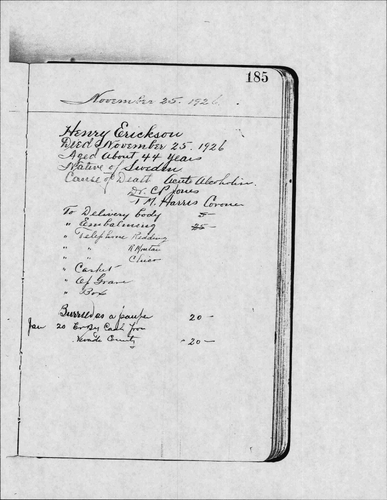 185
November 25. 1926
Henry Erickson
Died November 25. 1926
Aged About 44 Years
Native of Sweden
Cause of Death Acute Alcoholism
Dr. CP Jones
T M. Harris Coroner
To Delivery body 5-
" Embalming 25-
" Telephone Redding
" "
" " Chico
" Casket
" Op Grave
" Box
Burried as a pauper 20-
Jan 20 Er By Cash from
Nevada County -20-